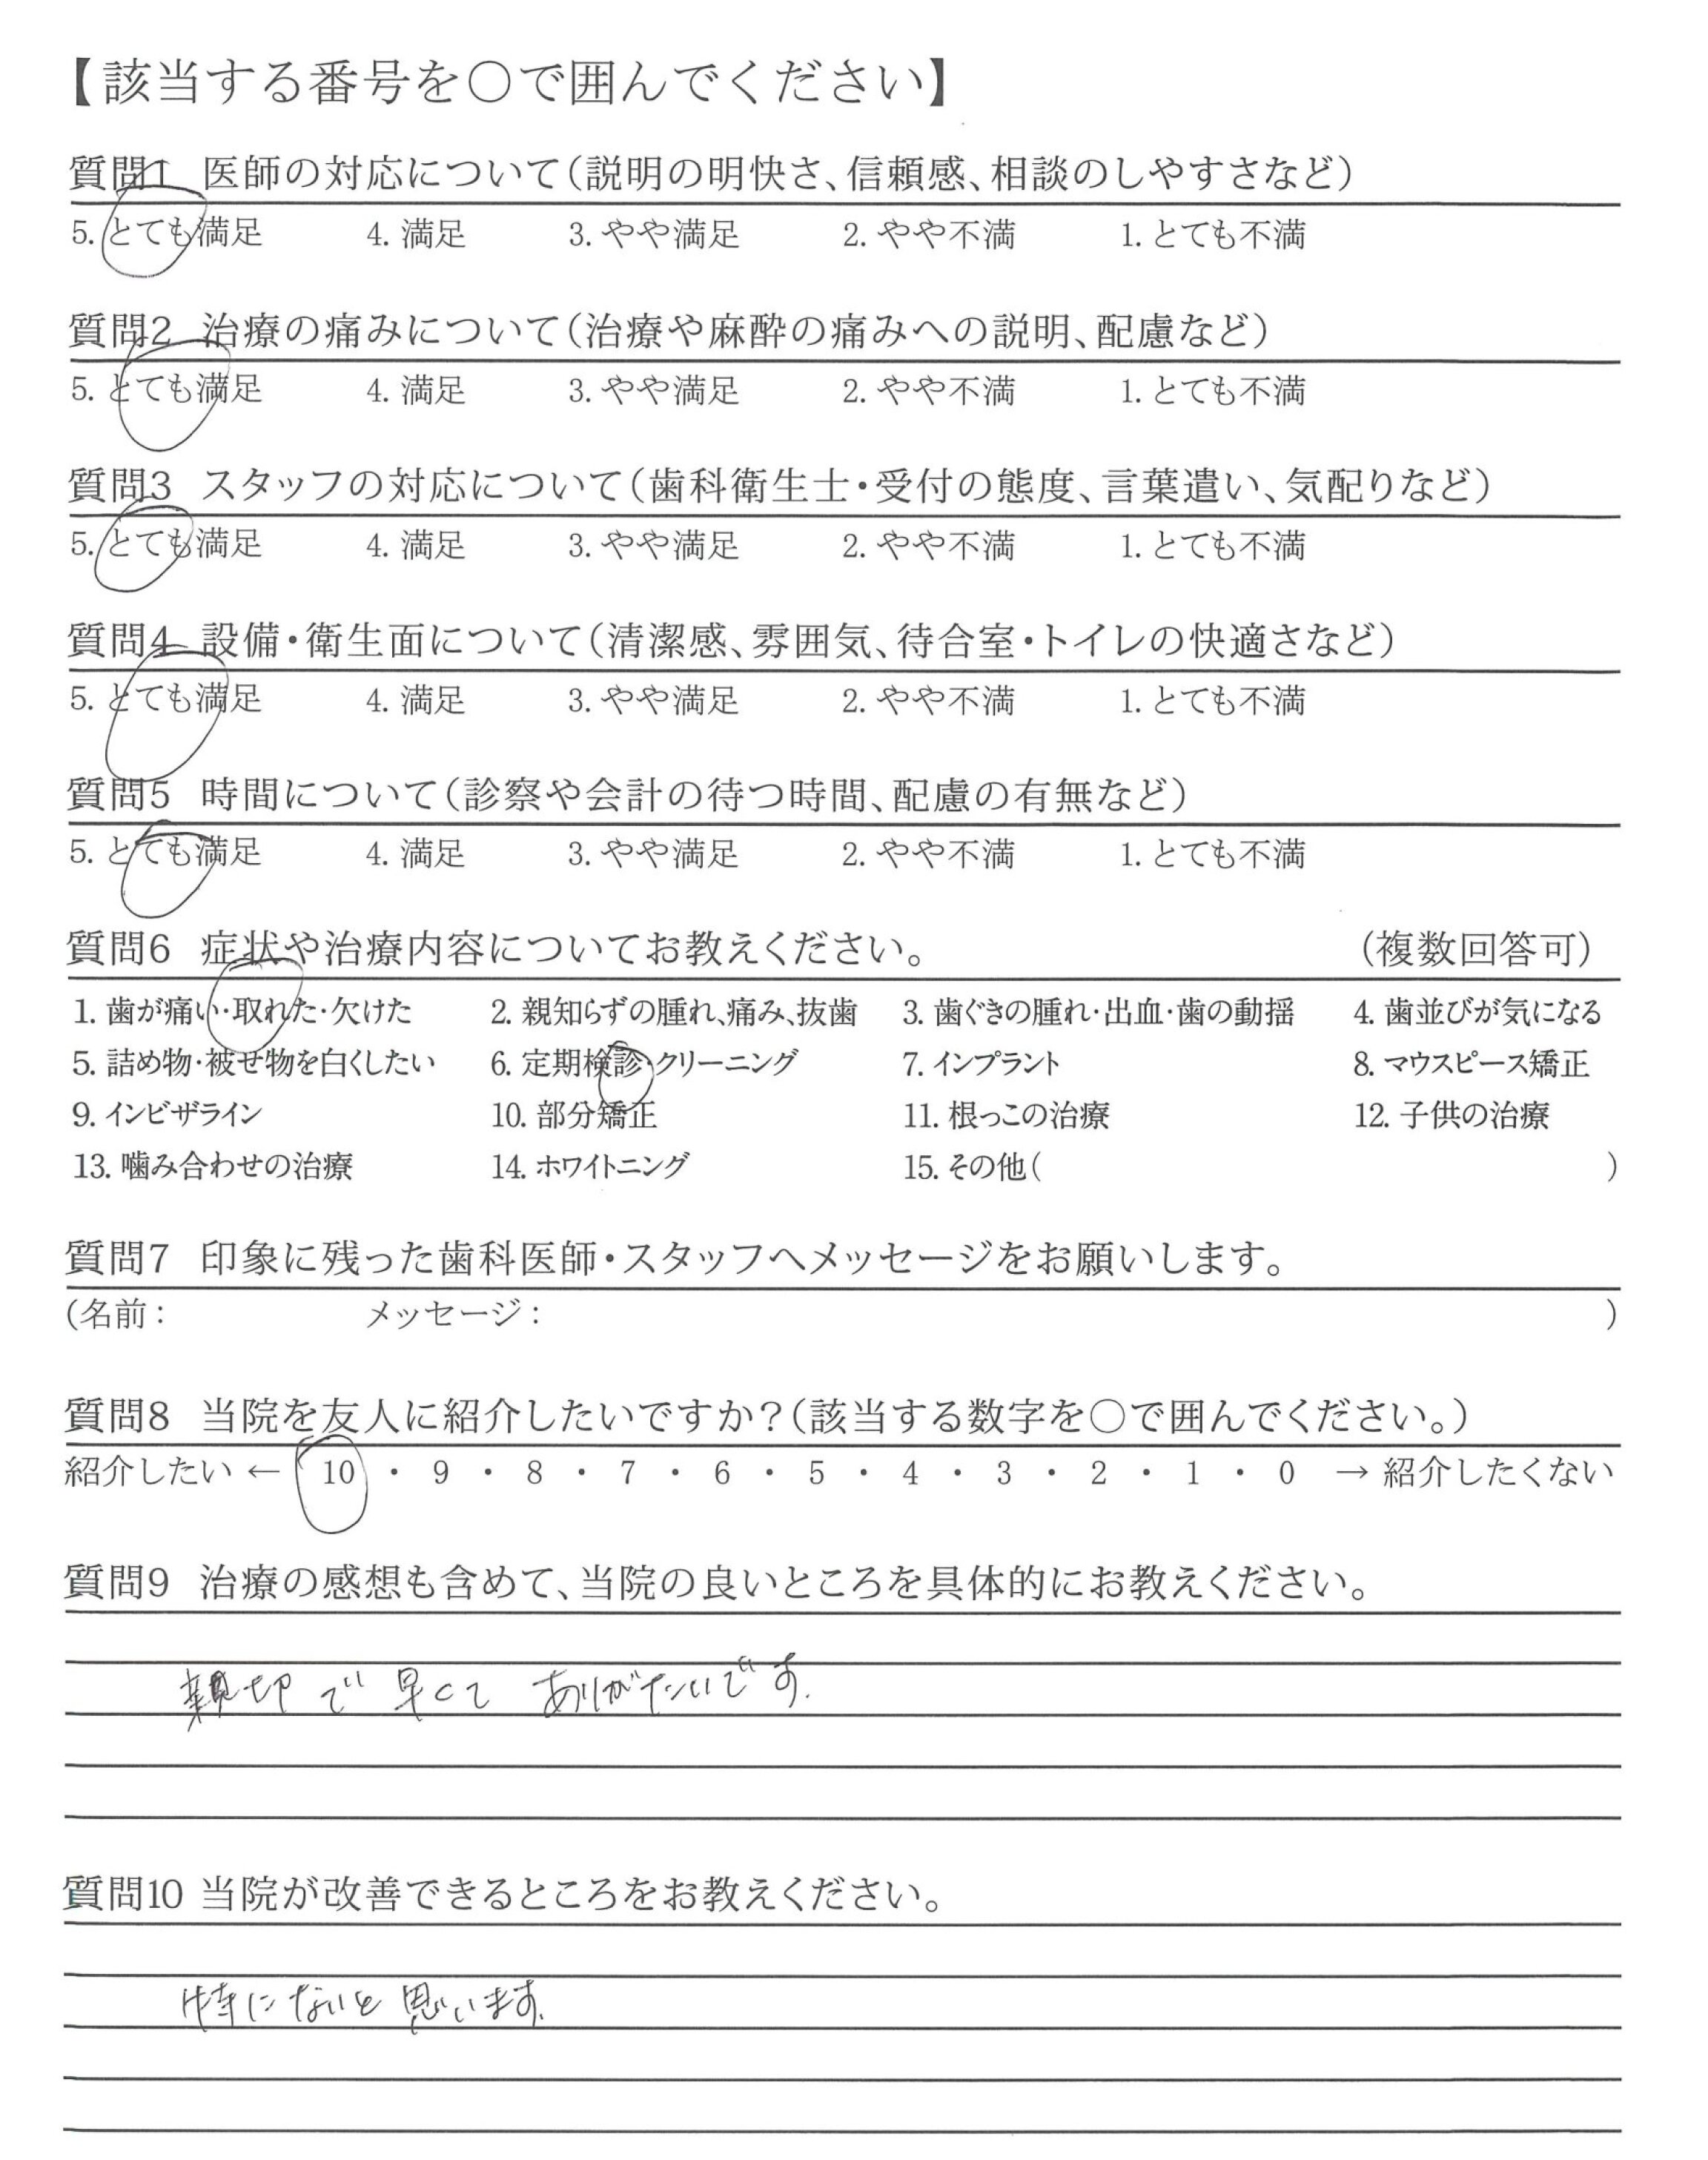 【該当する番号を〇で囲んでください】
質問1 医師の対応について(説明の明快さ、信頼感、相談のしやすさなど)
5. とても満足 4. 満足 3. やや満足 2. やや不満 1. とても不満
質問2 治療の痛みについて(治療や麻酔の痛みへの説明、配慮など)
5. とても満足 4. 満足 3. やや満足 2. やや不満 1. とても不満
質問3 スタッフの対応について(歯科衛生士・受付の態度、言葉遣い、気配りなど)
5. とても満足 4. 満足 3. やや満足 2. やや不満 1. とても不満
質問4 設備・衛生面について(清潔感、雰囲気、待合室・トイレの快適さなど)
5. とても満足 4. 満足 3. やや満足 2. やや不満 1. とても不満
質問5 時間について(診察や会計の待つ時間、配慮の有無など)
5. とても満足 4. 満足 3. やや満足 2. やや不満 1. とても不満
質問6 症状や治療内容についてお教えください。 (複数回答可)
1. 歯が痛い・取れた・欠けた 2. 親知らずの腫れ、痛み、抜歯 3. 歯ぐきの腫れ・出血・歯の動揺 4. 歯並びが気になる
5. 詰め物・被せ物を白くしたい 6. 定期検診・クリーニング 7. インプラント 8. マウスピース矯正
9. インビザライン 10. 部分矯正 11. 根っこの治療 12. 子供の治療
13. 噛み合わせの治療 14. ホワイトニング 15. その他( )
質問7 印象に残った歯科医師・スタッフへメッセージをお願いします。
(名前: メッセージ: )
質問8 当院を友人に紹介したいですか?(該当する数字を〇で囲んでください。)
紹介したい ← 10 ・ 9 ・ 8 ・ 7 ・ 6 ・ 5 ・ 4 ・ 3 ・ 2 ・ 1 ・ 0 → 紹介したくない
質問9 治療の感想も含めて、当院の良いところを具体的にお教えください。
親切で早くて ありがたいです.
質問10 当院が改善できるところをお教えください。
特にないと思います.